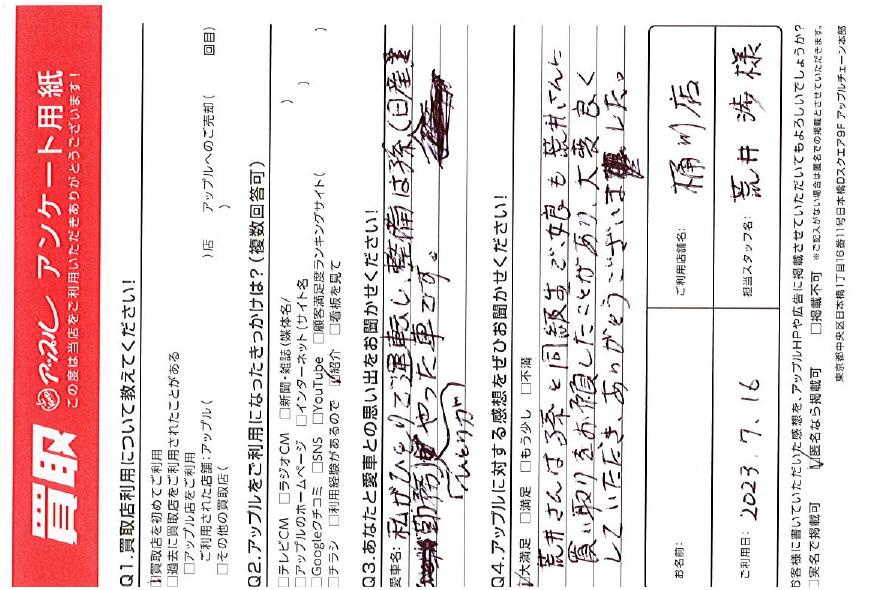 買取 アップル アンケート用紙
この度は当店をご利用いただきありがとうございます!
Q1.買取店利用について教えてください!
☑買取店を初めてご利用
□過去に買取店をご利用されたことがある
□アップル店をご利用
ご利用された店舗:アップル( )店 アップルへのご売却( 回目)
□その他の買取店( )
Q2.アップルをご利用になったきっかけは?(複数回答可)
□テレビCM □ラジオCM □新聞・雑誌(媒体名/ )
□アップルのホームページ □インターネット(サイト名 )
□Googleクチコミ □SNS □YouTube □顧客満足度ランキングサイト( )
□チラシ □利用経験があるので ☑紹介 □看板を見て
Q3.あなたと愛車との思い出をお聞かせください!
愛車名: 私がひとりで運転し、整備は孫(日産
勤務)がひとりでやった車です。
Q4.アップルに対する感想をぜひお聞かせください!
☑大満足 □満足 □もう少し □不満
荒井さんは孫と同級生で、娘も荒井さんに
買い取りをお願したことがあり、大変良く
していただき、ありがとうございました。
お名前: ご利用店舗名: 桶川店
ご利用日: 2023. 7. 16 担当スタッフ名: 荒井 渉 様
お客様に書いていただいた感想を、アップルHPや広告に掲載させていただいてもよろしいでしょうか?
□実名で掲載可 ☑匿名なら掲載可 □掲載不可 ※ご記入がない場合は匿名での掲載とさせていただきます。
東京都中央区日本橋1丁目16番11号日本橋Dスクエア9F アップルチェーン本部